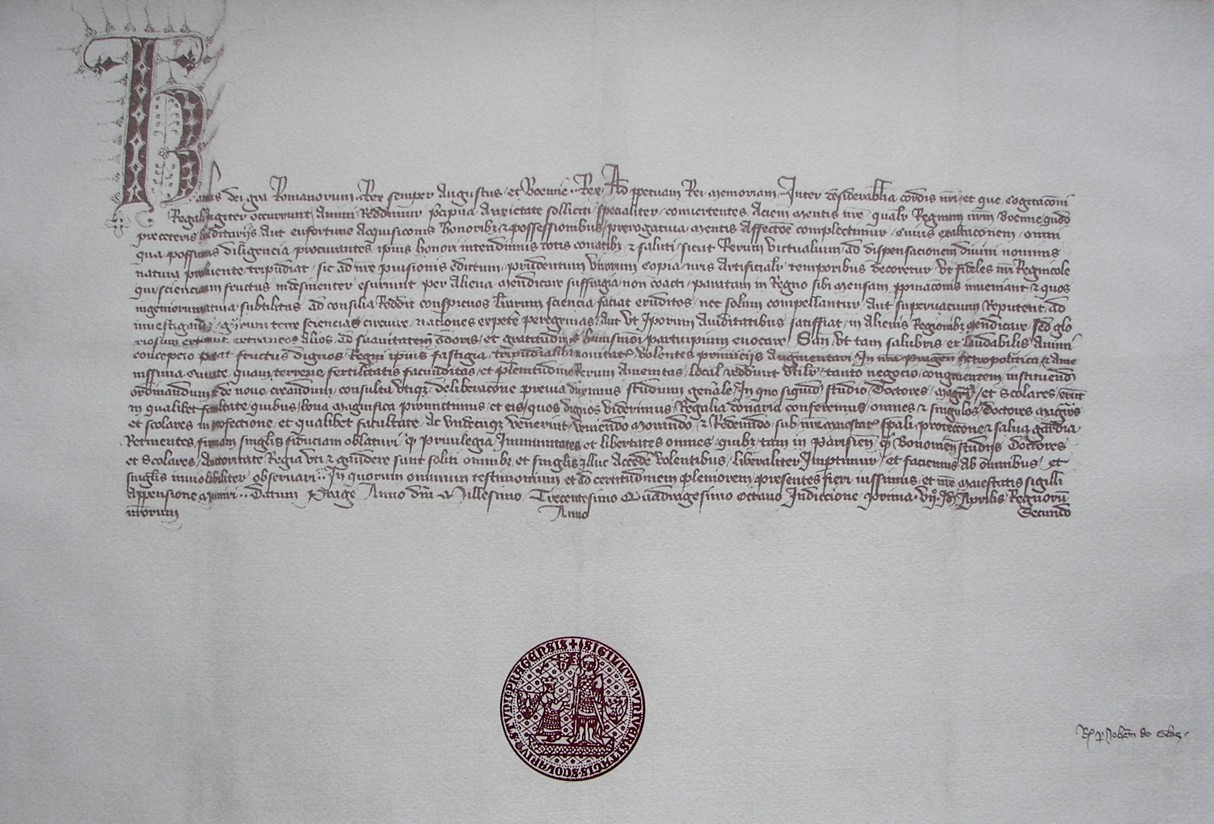 dei gra Romanorum Rex semper Augustus et Boemie Rex Ad ppetuam Rei memoriam Inter desiderabilia cordis nri et que cogitaconi
Regali iugiter occurrunt Animi Reddimur pcipua Anxietate solliciti specialiter convertentes Aciem mentis nre qualr Regnum nrm Boemie quod
preceteris aut eufortune Acquisicionis Honoribus et possessionibus prerogativa mentis Affectoe complectimur cuius exaltaconem omni
qua possumus diligencia procurantes ipius honori intendimus totis conatibz et saluti sicut Rerum victualium ad dispensacionem divini nominis
natura tripudiat sic ad nre pvisionis edictum prudentum virorum copia nris Artificialr temporibus decoretur Vt fideles nri Regnicole
qui scienciarum fructus indesinenter esuriunt per Aliena mendicare suffragia non coacti paratam in Regno sibi mensam ppinaconis inveniant et quos
ingeniorum subtilitas ad consilia Reddit conspicuos lrarum sciencia faciat eruditos nec solum compellantur Aut supervacuum Reputent ad
investigandas gyrum terre sciencias circuire naciones expete peregrinas Aut vt Ipsorum Auiditatibus satisfiat in Alienis Regionibz mendicare Sed glo
riosum extraneos Alios ad suavitatem odoris et gratitudinis huiusmoi participium evocare Sane vt tam salubris et laudabilis animi
concepcio fructus dignos Regni ipius fastigia volentes primiciis augmentari In Pragen metropolitica et ame
nissima Civitate quam terrene fertilitatis fecunditas et plenitudine Rerum Amenitas local reddunt vtilr tanto negocio congruentem instituend
ordinandum de novo creandum consulta vtiqz deliberacone previa duximus studium genale In quo siquid studio doctores magri et Scolares erunt
in qualibet facultate quibus bona magnifica promittimus et eis quos dignos viderimus Regalia donaria conferemus omnes et singulos doctores magros
et scolares in pfectione et qualibet facultate Ac vndecuqz venerint veniendo morando et Redeundo sub spali proteccone et salva gardia
Retinentes firmam singlis fiduciam oblaturi q privilegia Immunitates et libertates omnes quibz tam in Parisien q Bononien studijs doctores
et Scolares Auctoritate Regia vti et gaudere sunt soliti omnibz et singlis illuc Accede volentibus liberaliter Imptimur et faciemus ab omnibus et
singlis inviolabiliter observari In quorum omnium testimonium et ad certitudinem pleniorem presentes fieri iussimus et nre maiestatis sigilli
Appensione Datum Prage Anno dni Millesimo Trecentesimo Quadragesimo Octavo Indiccione prima vij Id Aprilis Regnorum
nrorum Anno Secundo
SIGILLVM VNIVERSITATIS SCOLARIVM STVDII PRAGENSIS